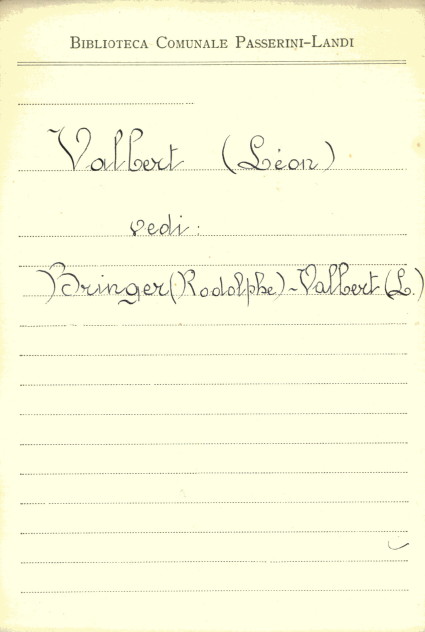 Biblioteca Comunale Passerini-Landi
Valbert (Léon)
vedi:
Bringer (Rodolphe) - Valbert (L.)